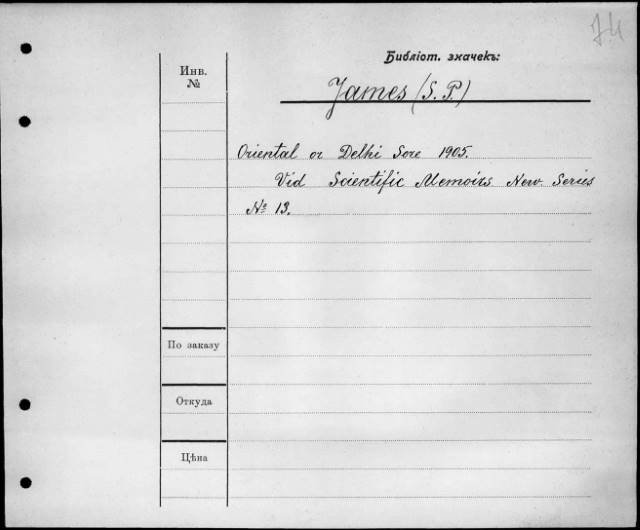 74
Библіот. значекъ:
Инв.
№
James (S. P.)
Oriental or Delhi Sore 1905.
Vid Scientific Memoirs New Series
№ 13.
По заказу
Откуда
Цѣна